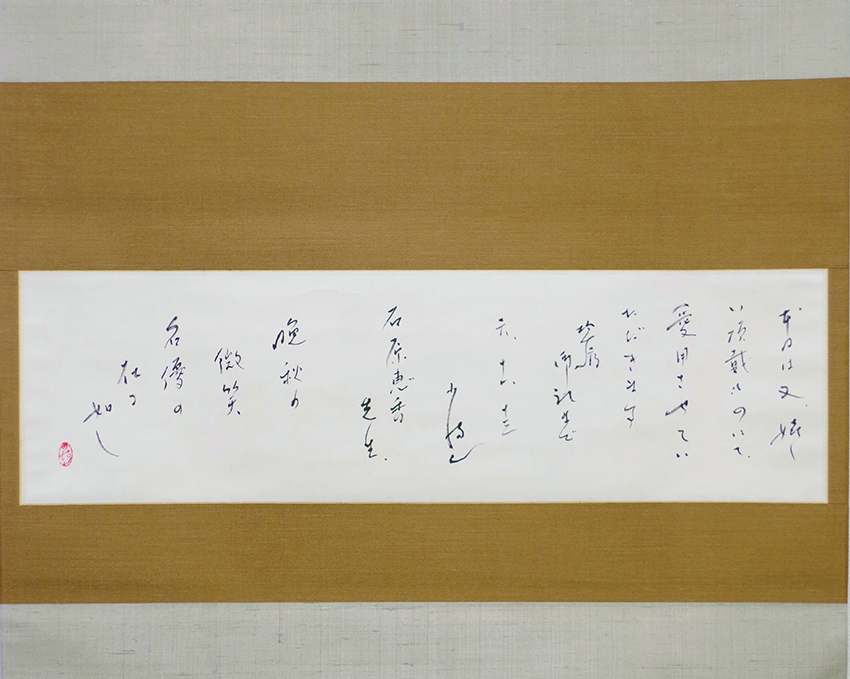 本日は又、嬉しい
頂戴ものにて、
愛用させてい
ただきます
御礼まで
六、十一、十三
石原恵香
先生
晩秋の
微笑
名優の
在るが
如し